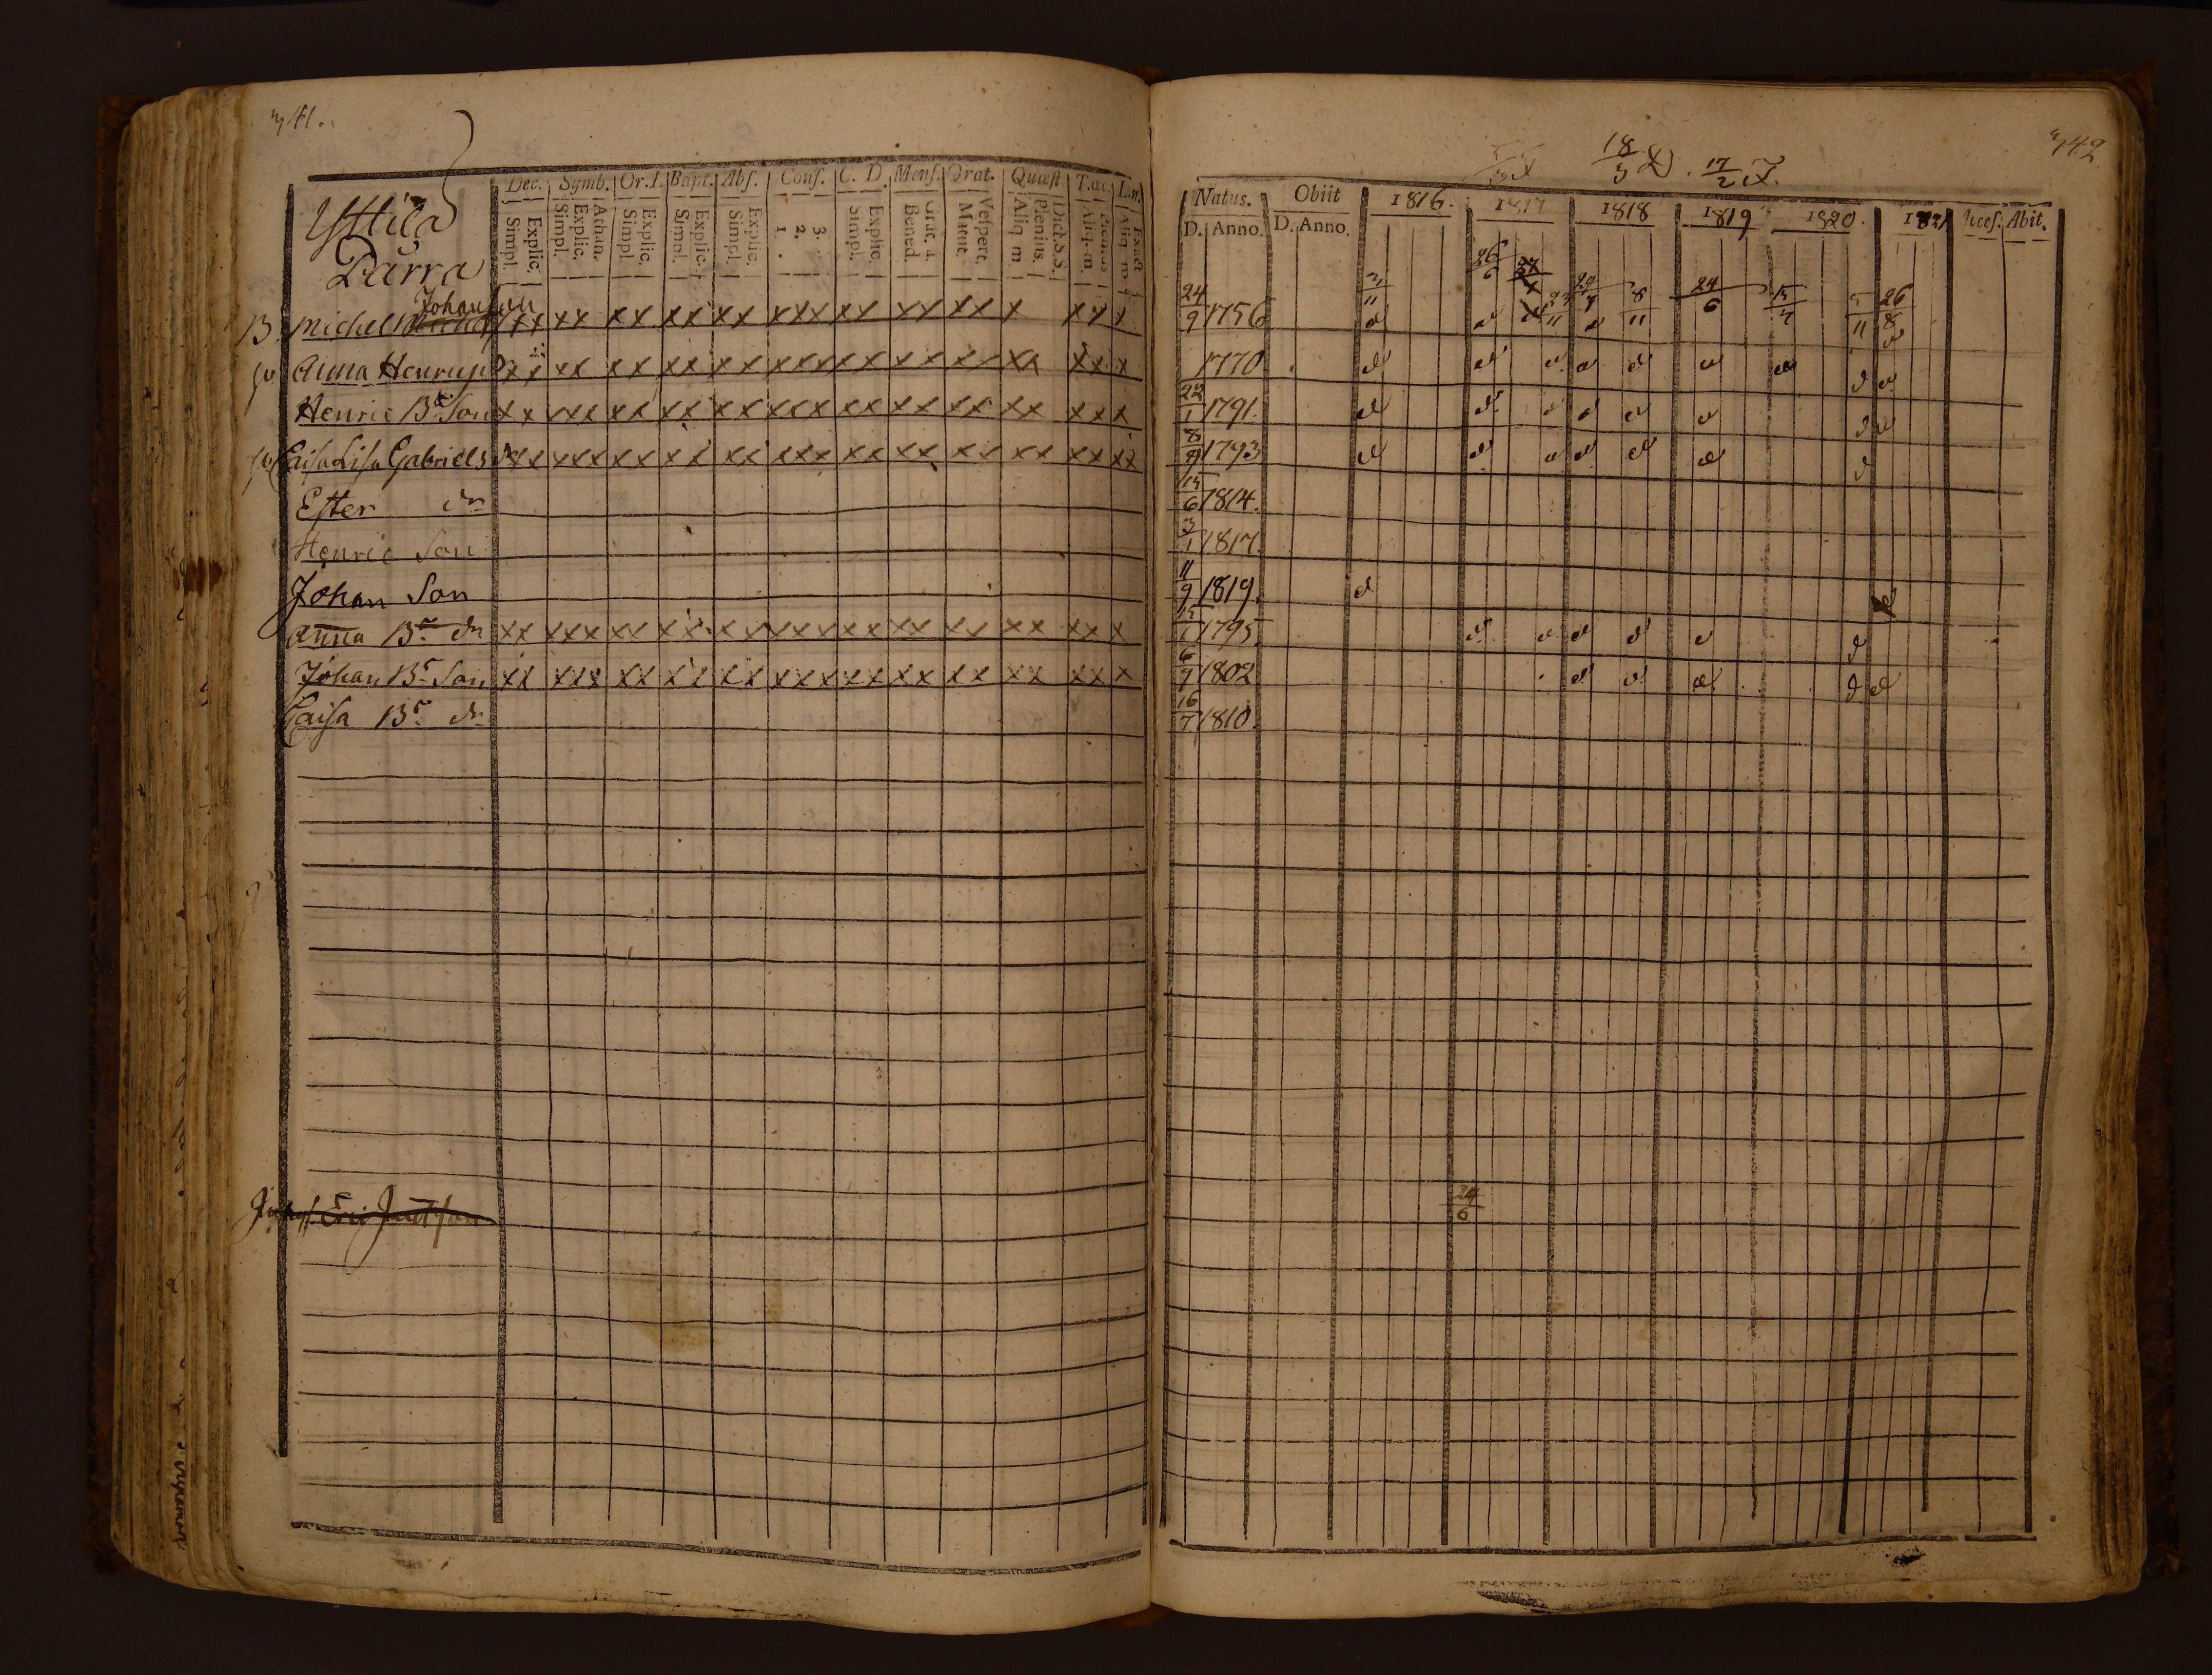 741.
742
18/3 D. 17/2 I.
Dec. Symb. Or.D. Bapt. Abs. Conf. C. D. Mens. Orat. Quæst T.œc. L.n.
Simpl. Explic. Simpl. Explic. Athan. Simpl. Explic. Simpl. Explic. Simpl. Explic. 1. 2. 3. Simpl. Explic. Bened. Grat. a. Matut. Vespert. Aliq. m. Plenius. Dict.S.S. Aliq. m. Plenius Aliq. m. Exact
Natus. Obiit 1816. 1817 1818 1819 1820. 1821 Acces. Abit.
D. Anno. D. Anno.
Yttilä
Pärra
26/6 24/11 8/11 24/6 15/4 5/11 26/8
Johansson
B. Michel xx xx xx xx xx xxx xx xx xx x xx x 24/9 1756
hu Anna Henricsd xx xx xx xx xx xxx xx xx xx xx xx x 1770
Henric Bs Son xx xxx xx xx xx xxx xx xx xx xx xx x 22/1 1791.
hu Caisa Lisa Gabriels dr xx xxx xx xx xx xxx xx xx xx xx xx xx 8/9 1793
Ester dr 15/6 1814.
Henric Son 3/1 1817.
Johan Son 11/9 1819.
Anna Br dr xx xxx xx xx xx xxx xx xx xx xx xx x 1795.
Johan Br Son xx xxx xx xx xx xxx xx xx xx xx xx x 6/9 1802
Caisa Br dr 16/7 1810.
24/6